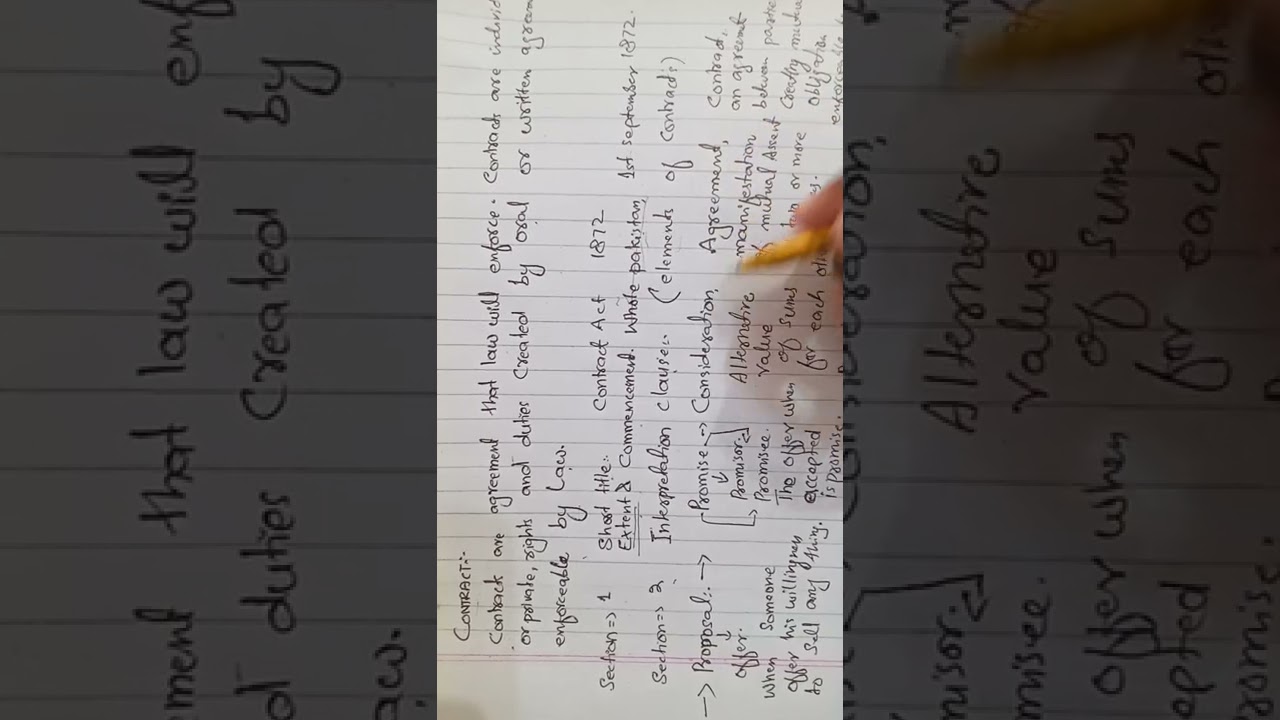 CONTRACT:-
Contracts are agreement that law will enforce. Contracts are individ
or private, rights and duties created by oral or written agreem
enforceable by Law.
Section => 1 Short title:- Contract Act 1872
Extent & Commencement. Whole pakistan, 1st september 1872.
Section => 2 Interpretation clause:- (elements of contracts)
→ Proposal:- → Promise → Consideration, Agreement, Contract,
offer.
When Someone
offer his willingness
to sell any thing.
Promisor.
Promisee.
The offer when
accepted
is promise.
Alternative
value
of sums
for each
manifestation
of mutual Assent
or more
an agreement
between partie
Creating mutua
obligation
enforceable